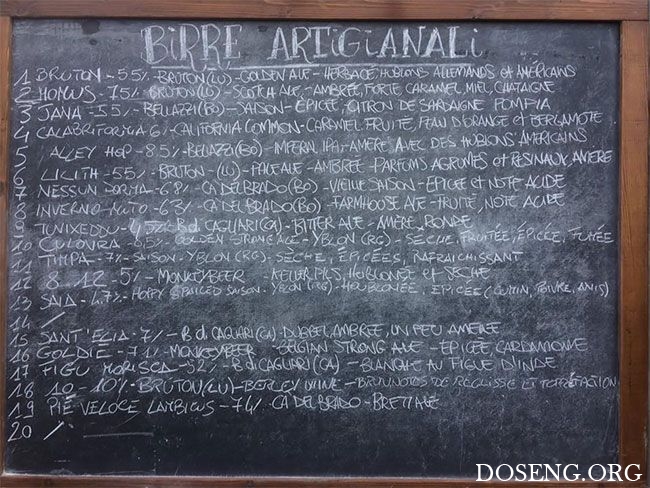 BIRRE ARTIGIANALI
1 BRUTON - 5.5% - BRUTON (LU) - GOLDEN ALE - HERBACE, HOUBLONS ALLEMANDS et AMÉRICAINS
2 HOMUS - 7.5% - BRUTON (LU) - SCOTCH ALE - AMBRÉE, FORTE CARAMEL, MIEL, CHATAIGNE
3 JANA - 5.5% - BELLAZZI (BO) - SAISON - EPICÉE, CITRON DE SARDAIGNE POMPIA
4 CALIFORNIA COMMON - CARAMEL FRUITÉ, PEAU D'ORANGE et BERGAMOTE
5 ALLEY HOP - 8.5% - BELLAZZI (BO) - IMPERIAL IPA - AMÈRE AVEC DES HOUBLONS AMÉRICAINS
6 LILITH - 5.5% - BRUTON - (LU) - PALE ALE - AMBRÉE - PARFUMS AGRUMES et RESINAUX, AMÈRE
7 NESSUN DORMA - 6.8% - CA' DEL BRADO (BO) - VIEILLE SAISON - EPICÉE et NOTE ACIDE
8 INVERNO MUTO - 6.3% - CA' DEL BRADO (BO) - FARMHOUSE ALE - FRUITÉ, NOTE ACIDE
9 TUNIXEDDU - B. di CAGLIARI (CA) - BITTER ALE - AMÈRE, RONDE
10 CULOVRA - 8.5% - GOLDEN STRONG ALE - YBLON (RG) - SÈCHE, FRUITÉE, EPICÉE, FUMÉE
11 TIMPA - 7% - SAISON - YBLON (RG) - SÈCHE, EPICÉES, RAFRAICHISSANT
12 8.12 - 5% - MONKEYBEER - KELLER PILS, HOUBLONGE et SÈCHE
13 SAIA - 4.7% - HOPPY SPICED SAISON - YBLON (RG) - HOUBLONÉE, EPICÉE (CUMIN, POIVRE, ANIS)
14 /
15 SANT'ELIA - 7% - B. di CAGLIARI (CA) - DUBBEL, AMBRÉE, UN PEU AMÈRE
16 GOLDIE - 7.1% - MONKEYBEER - BELGIAN STRONG ALE - EPICÉE, CARDAMOME
17 FIGU MORISCA - 5.2% - B. di CAGLIARI (CA) - BLANCHE AU FIGUE D'INDE
18 10 - 10% - BRUTON (LU) - BERLEY WINE - BRUN, NOTES DE REGLISSE ET TORREFACTION
19 PIÈ VELOCE LAMBICUS - CA' DEL BRADO - BRETT ALE
20 /
DOSENG.ORG